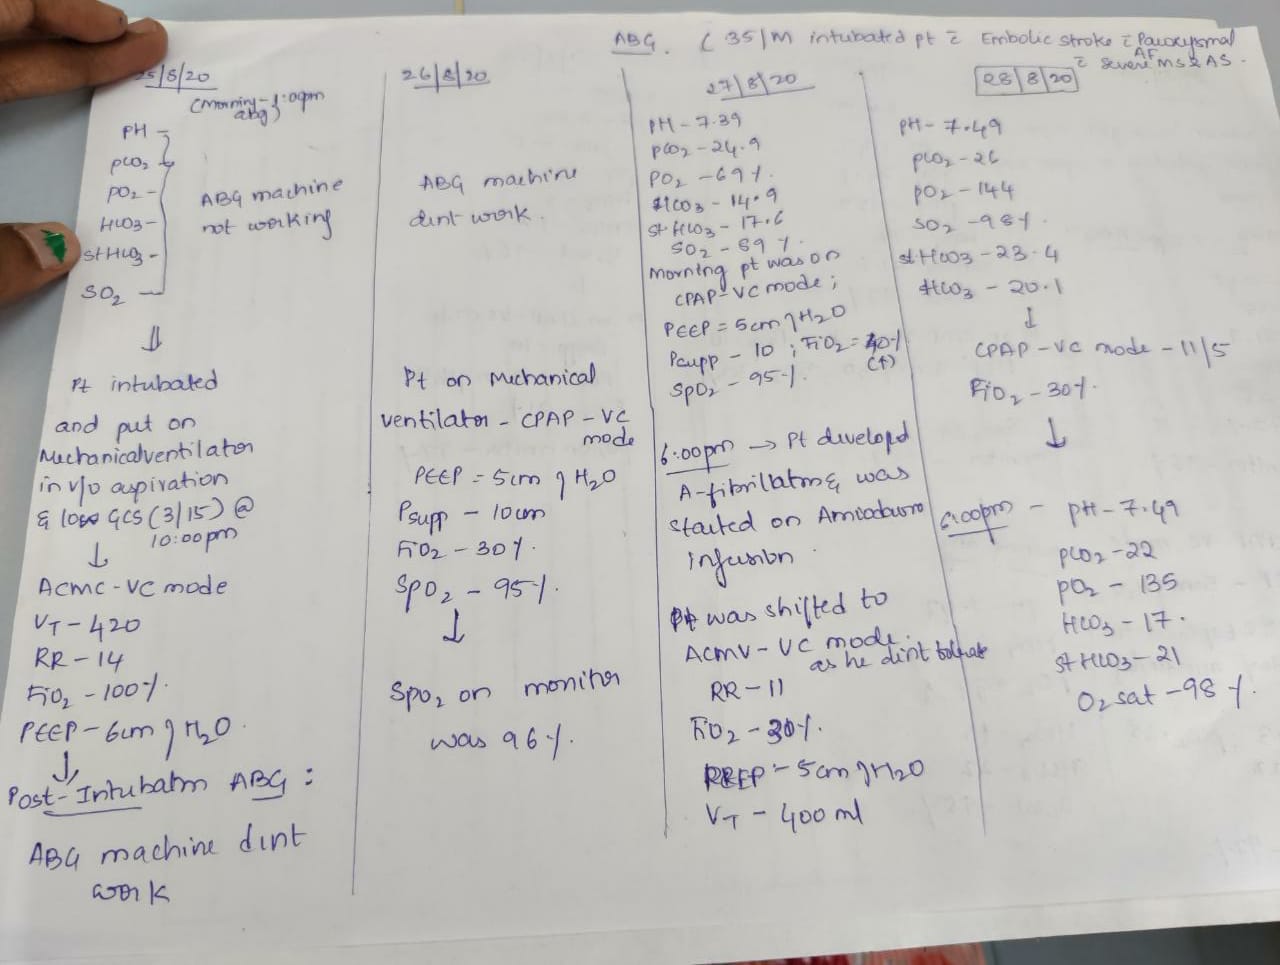 ABG. ( 35/M intubated pt c̄ Embolic stroke c̄ Paroxysmal AF
c̄ severe MS & AS.
25/8/20
(Morning - 1:00pm
abg)
PH -
pCO2 -
PO2 -
HCO3 -
st HCO3 -
SO2 -
ABG machine
not working
⇓
Pt intubated
and put on
Mechanical ventilator
in v/o aspiration
& low GCS (3/15) @
10:00pm
↓
ACMC - VC mode
VT - 420
RR - 14
FiO2 - 100%.
PEEP - 6cm of H2O.
↓
Post-Intubatm ABG :
ABG machine dint
work
26/8/20
ABG machine
dint work.
Pt on Mechanical
ventilator - CPAP - VC
mode
PEEP = 5cm of H2O
Psupp - 10cm
FiO2 - 30%.
SpO2 - 95%.
↓
SpO2 on monitor
was 96%.
27/8/20
PH - 7.39
pCO2 - 24.9
PO2 - 69%.
HCO3 - 14.9
st HCO3 - 17.6
SO2 - 89%.
Morning pt was on
CPAP - VC mode ;
PEEP = 5cm of H2O
Psupp - 10 ; FiO2 = 40%
(↑)
SpO2 - 95%.
6:00pm → Pt developd
A-fibrillatn & was
started on Amiodaro
infusion.
Pt was shifted to
ACMV - VC mode.
as he dint tolerate
RR - 11
FiO2 - 30%.
PEEP - 5cm of H2O
VT - 400 ml
28/8/20
PH - 7.49
pCO2 - 26
PO2 - 144
SO2 - 98%.
st HCO3 - 23.4
HCO3 - 20.1
↓
CPAP - VC mode - 11/5
FiO2 - 30%.
↓
6:00pm - PH - 7.49
pCO2 - 22
pO2 - 135
HCO3 - 17.
st HCO3 - 21
O2 sat - 98%.